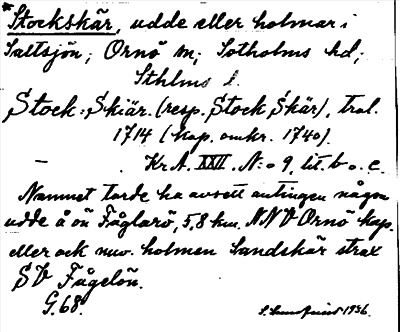 *Stockskär, udde eller holmar i
Saltsjön; Ornö sn; Sotholms hd;
Sthlms l.
Stock: Skiär. (resp. Stock Skär), trol.
1714 (kop. omkr. 1740).
— Kr.A. XXII. N:o 9, lit. b o. c.
Namnet torde ha avsett antingen någon
udde å ön Fåglarö, 5,8 km. NNV Ornö kap.
eller ock nuv. holmen Sandskär strax
SV Fågelön.
G. 68. 1936.